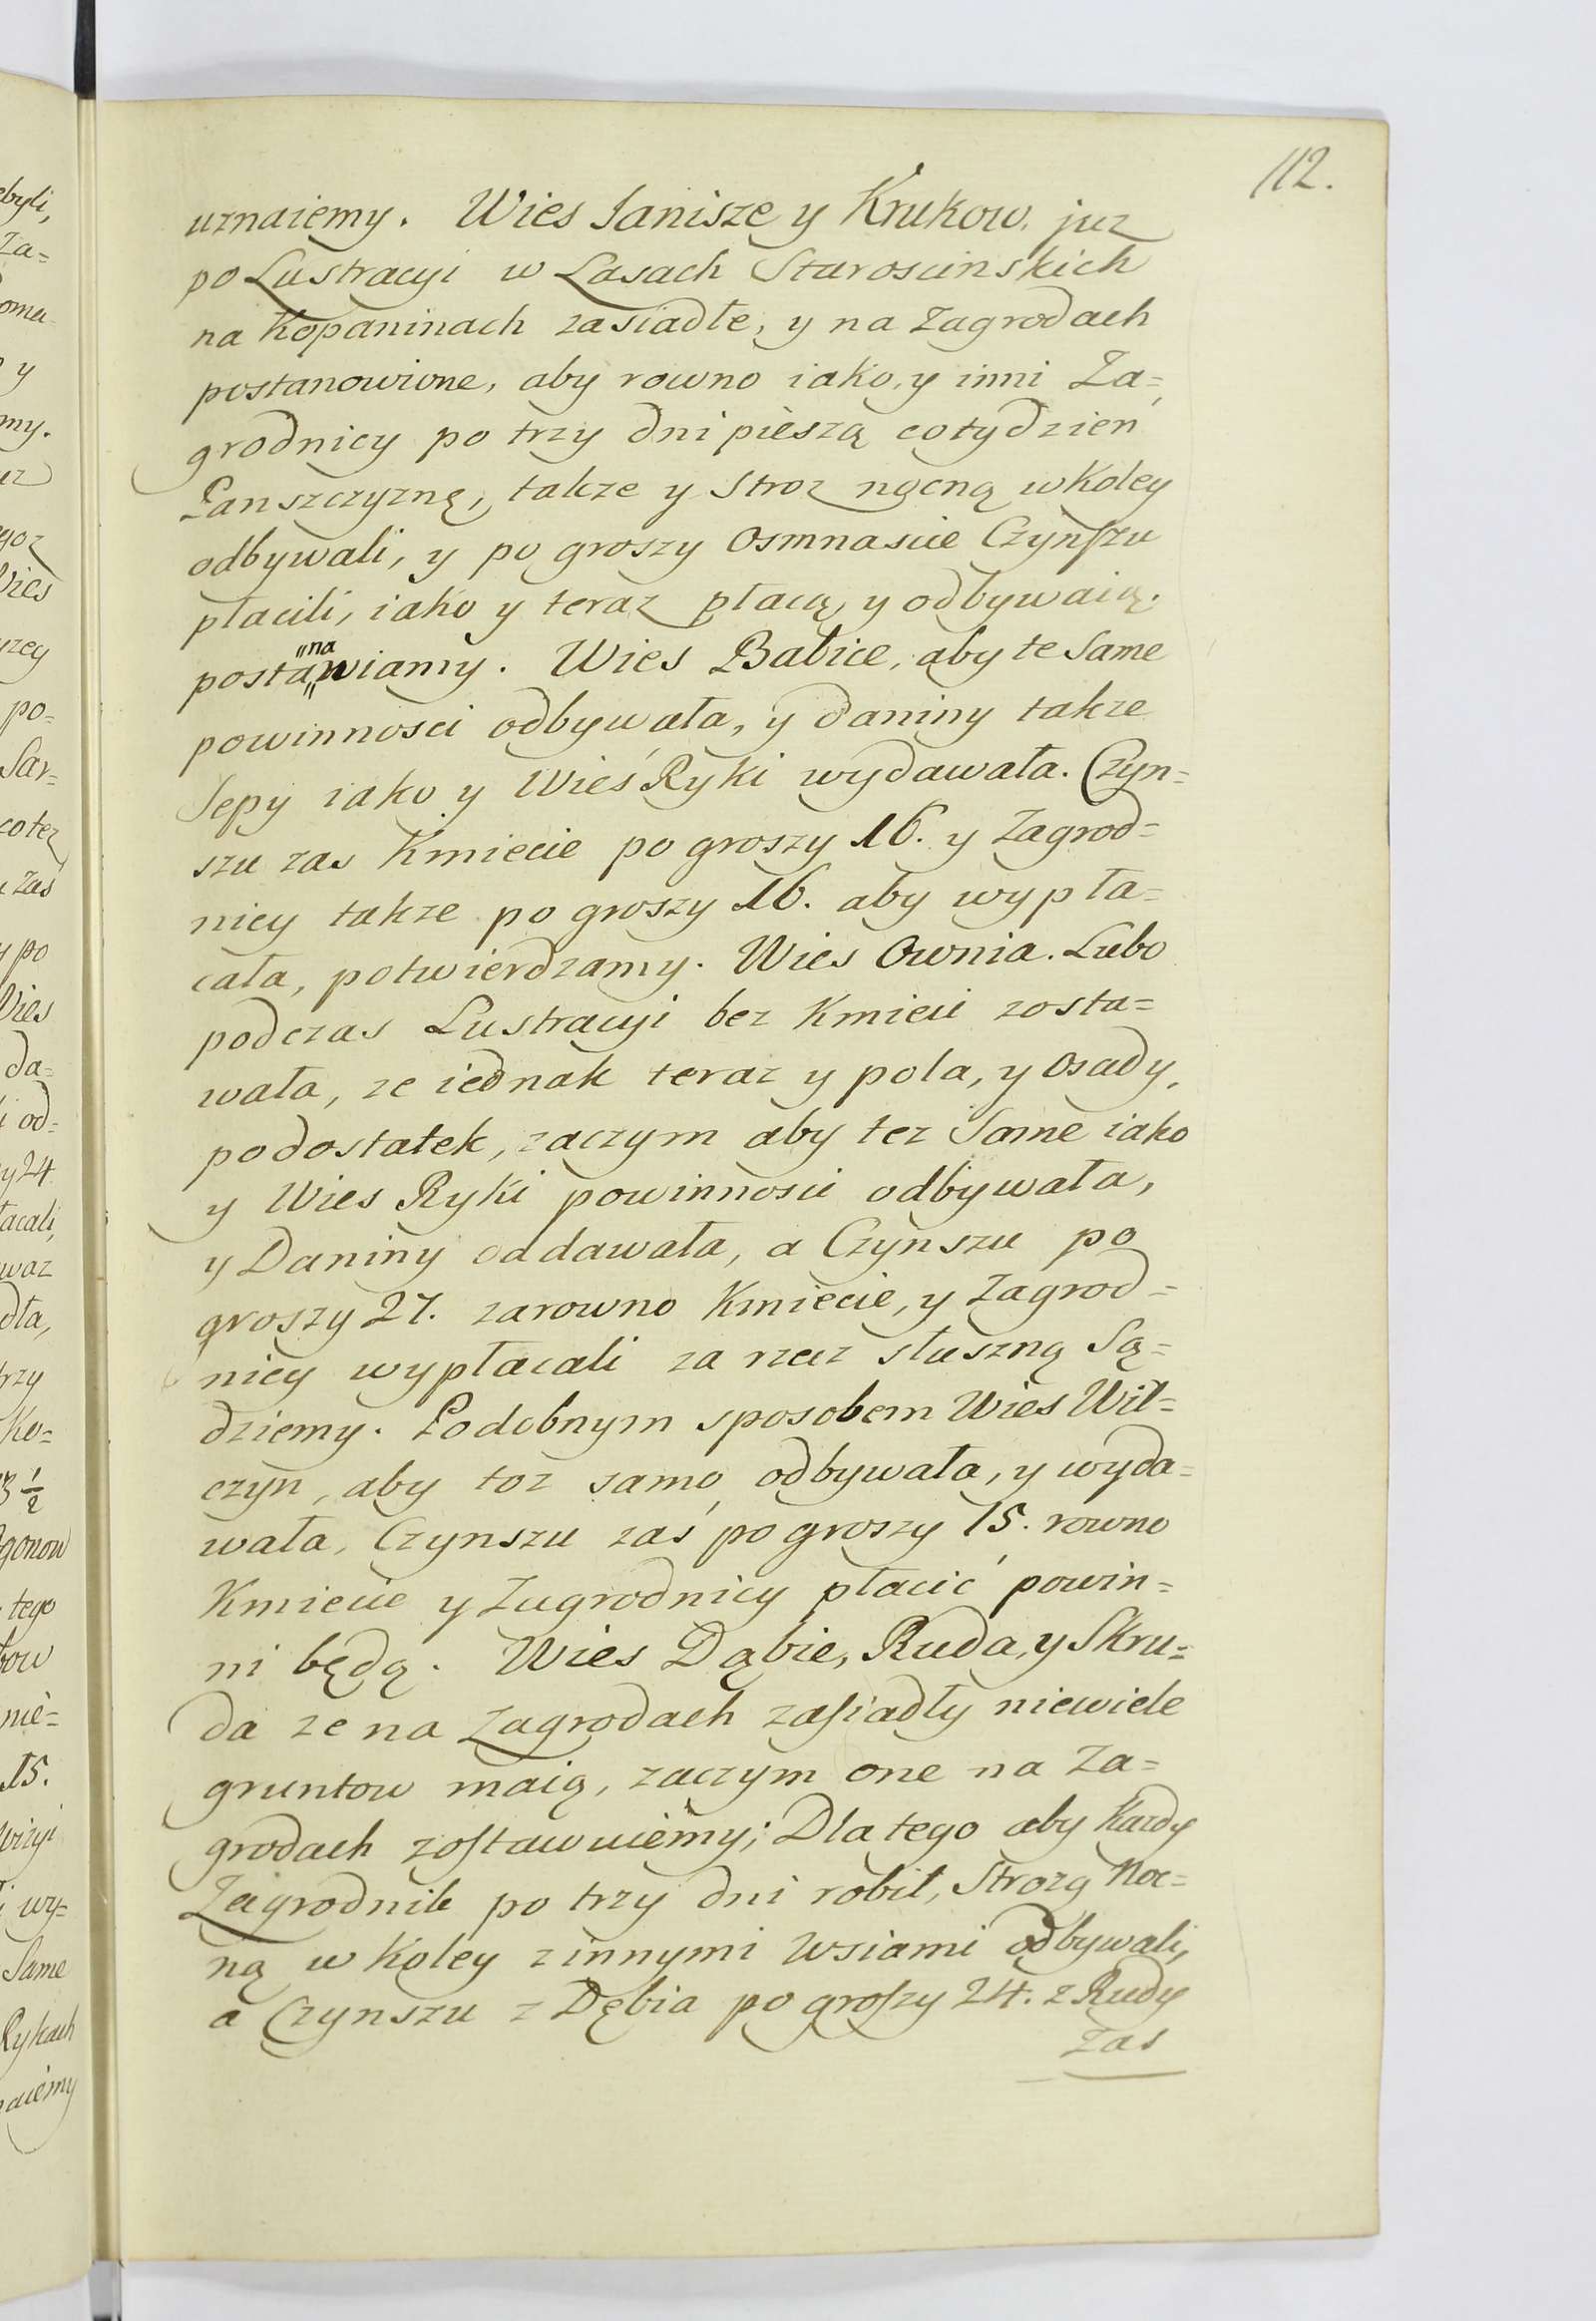 112.
uznaiemy. Wies Janisze y Krukow. juz
po Lustracyi w Lasach Staroscinskich
na Kopaninach zasiadłe, y na Zagrodach
postanowione, aby rowno iako, y inni Za=
grodnicy po trzy dni pieszą cotydzień
Panszczyznę, takze y Stroz nocną w Koley
odbywali, y po groszy Osmnascie Czynszu
płacili, iako y teraz płacą, y odbywaią.
"na
postawiamy. Wies Babice, aby te Same
powinnosci odbywała, y daniny takze
Sepy iako y Wieś Ryki wydawała. Czyn=
szu zas Kmiecie po groszy 16. y Zagrod=
nicy takze po groszy 16. aby wypła=
cała, potwierdzamy. Wies Ownia. Lubo
podczas Lustracyi bez Kmieci zosta=
wała, ze iednak teraz y pola, y Osady,
podostatek, zaczym aby tez Same iako
y Wies Ryki powinnosci odbywała,
y Daniny oddawała, a Czynszu po
groszy 27. zarowno Kmiecie, y Zagrod=
nicy wypłacali za rzecz słuszną Są=
dziemy. Podobnym sposobem Wies Wił=
czyn, aby toz samo odbywała, y wyda=
wała, Czynszu zaś po groszy 15. rowno
Kmiecie y Zagrodnicy płacić powin=
ni będą. Wies Dąbie, Ruda, y Skru=
da ze na Zagrodach zasiadły niewiele
gruntow maią, zaczym one na Za=
grodach zostawuiemy; Dla tego aby Kazdy
Zagrodnik po trzy dni robił, Strozą Noc=
ną w Koley z innymi Wsiami odbywali,
a Czynszu z Dębia po groszy 24. z Rudy
Zas